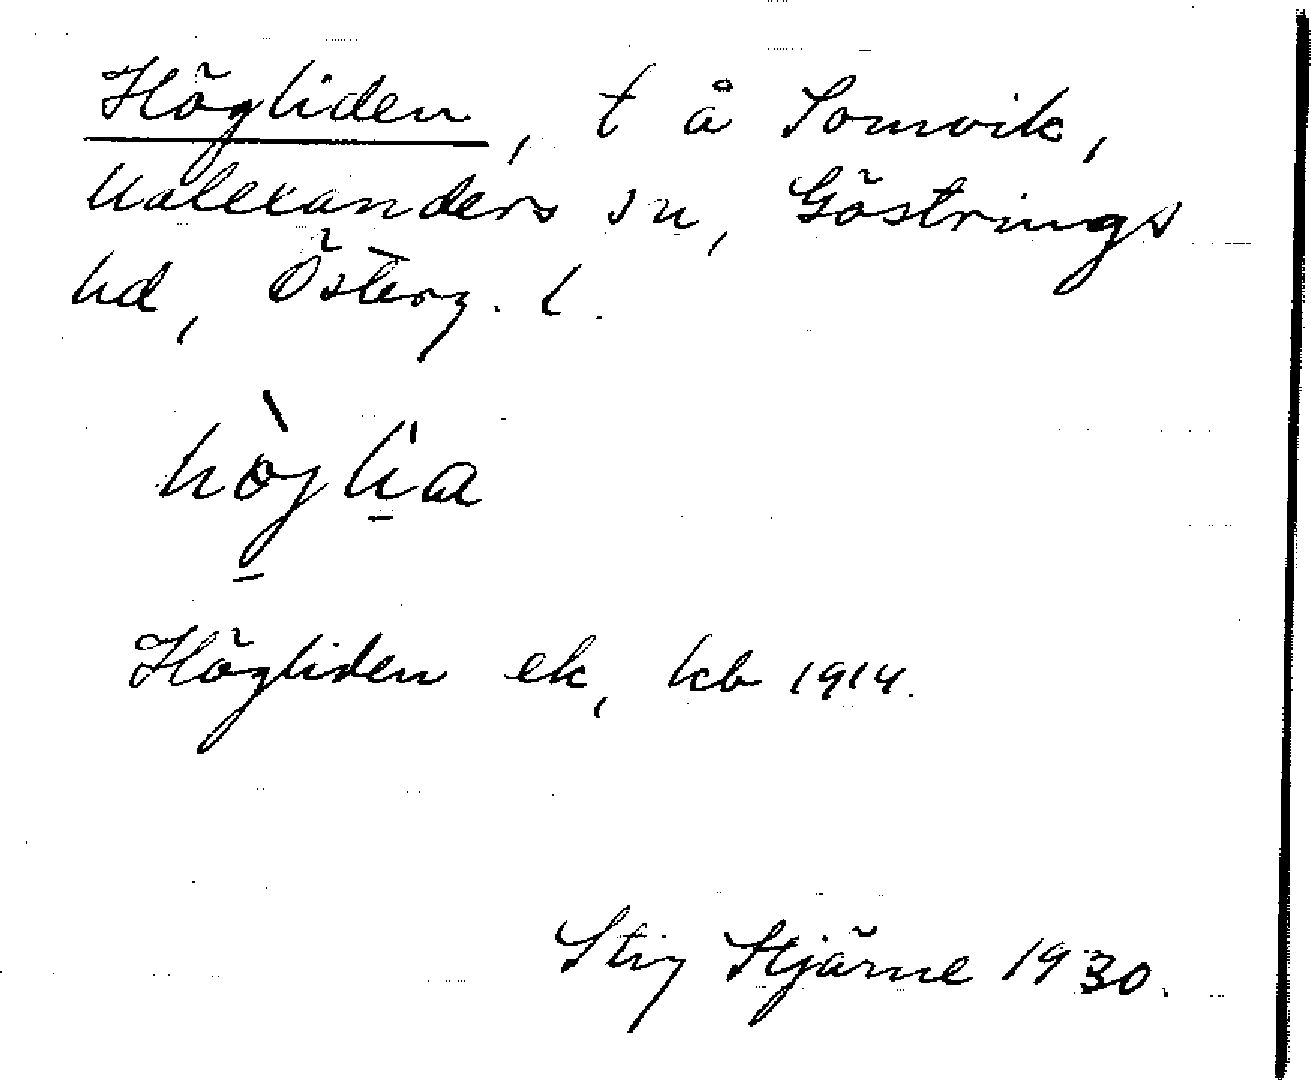 Högliden, t å Somvik,
Malexanders sn, Göstrings
hd, Österg. l.
hògli̠a
Högliden ek, kb 1914.
Stig Stjärne 1930.